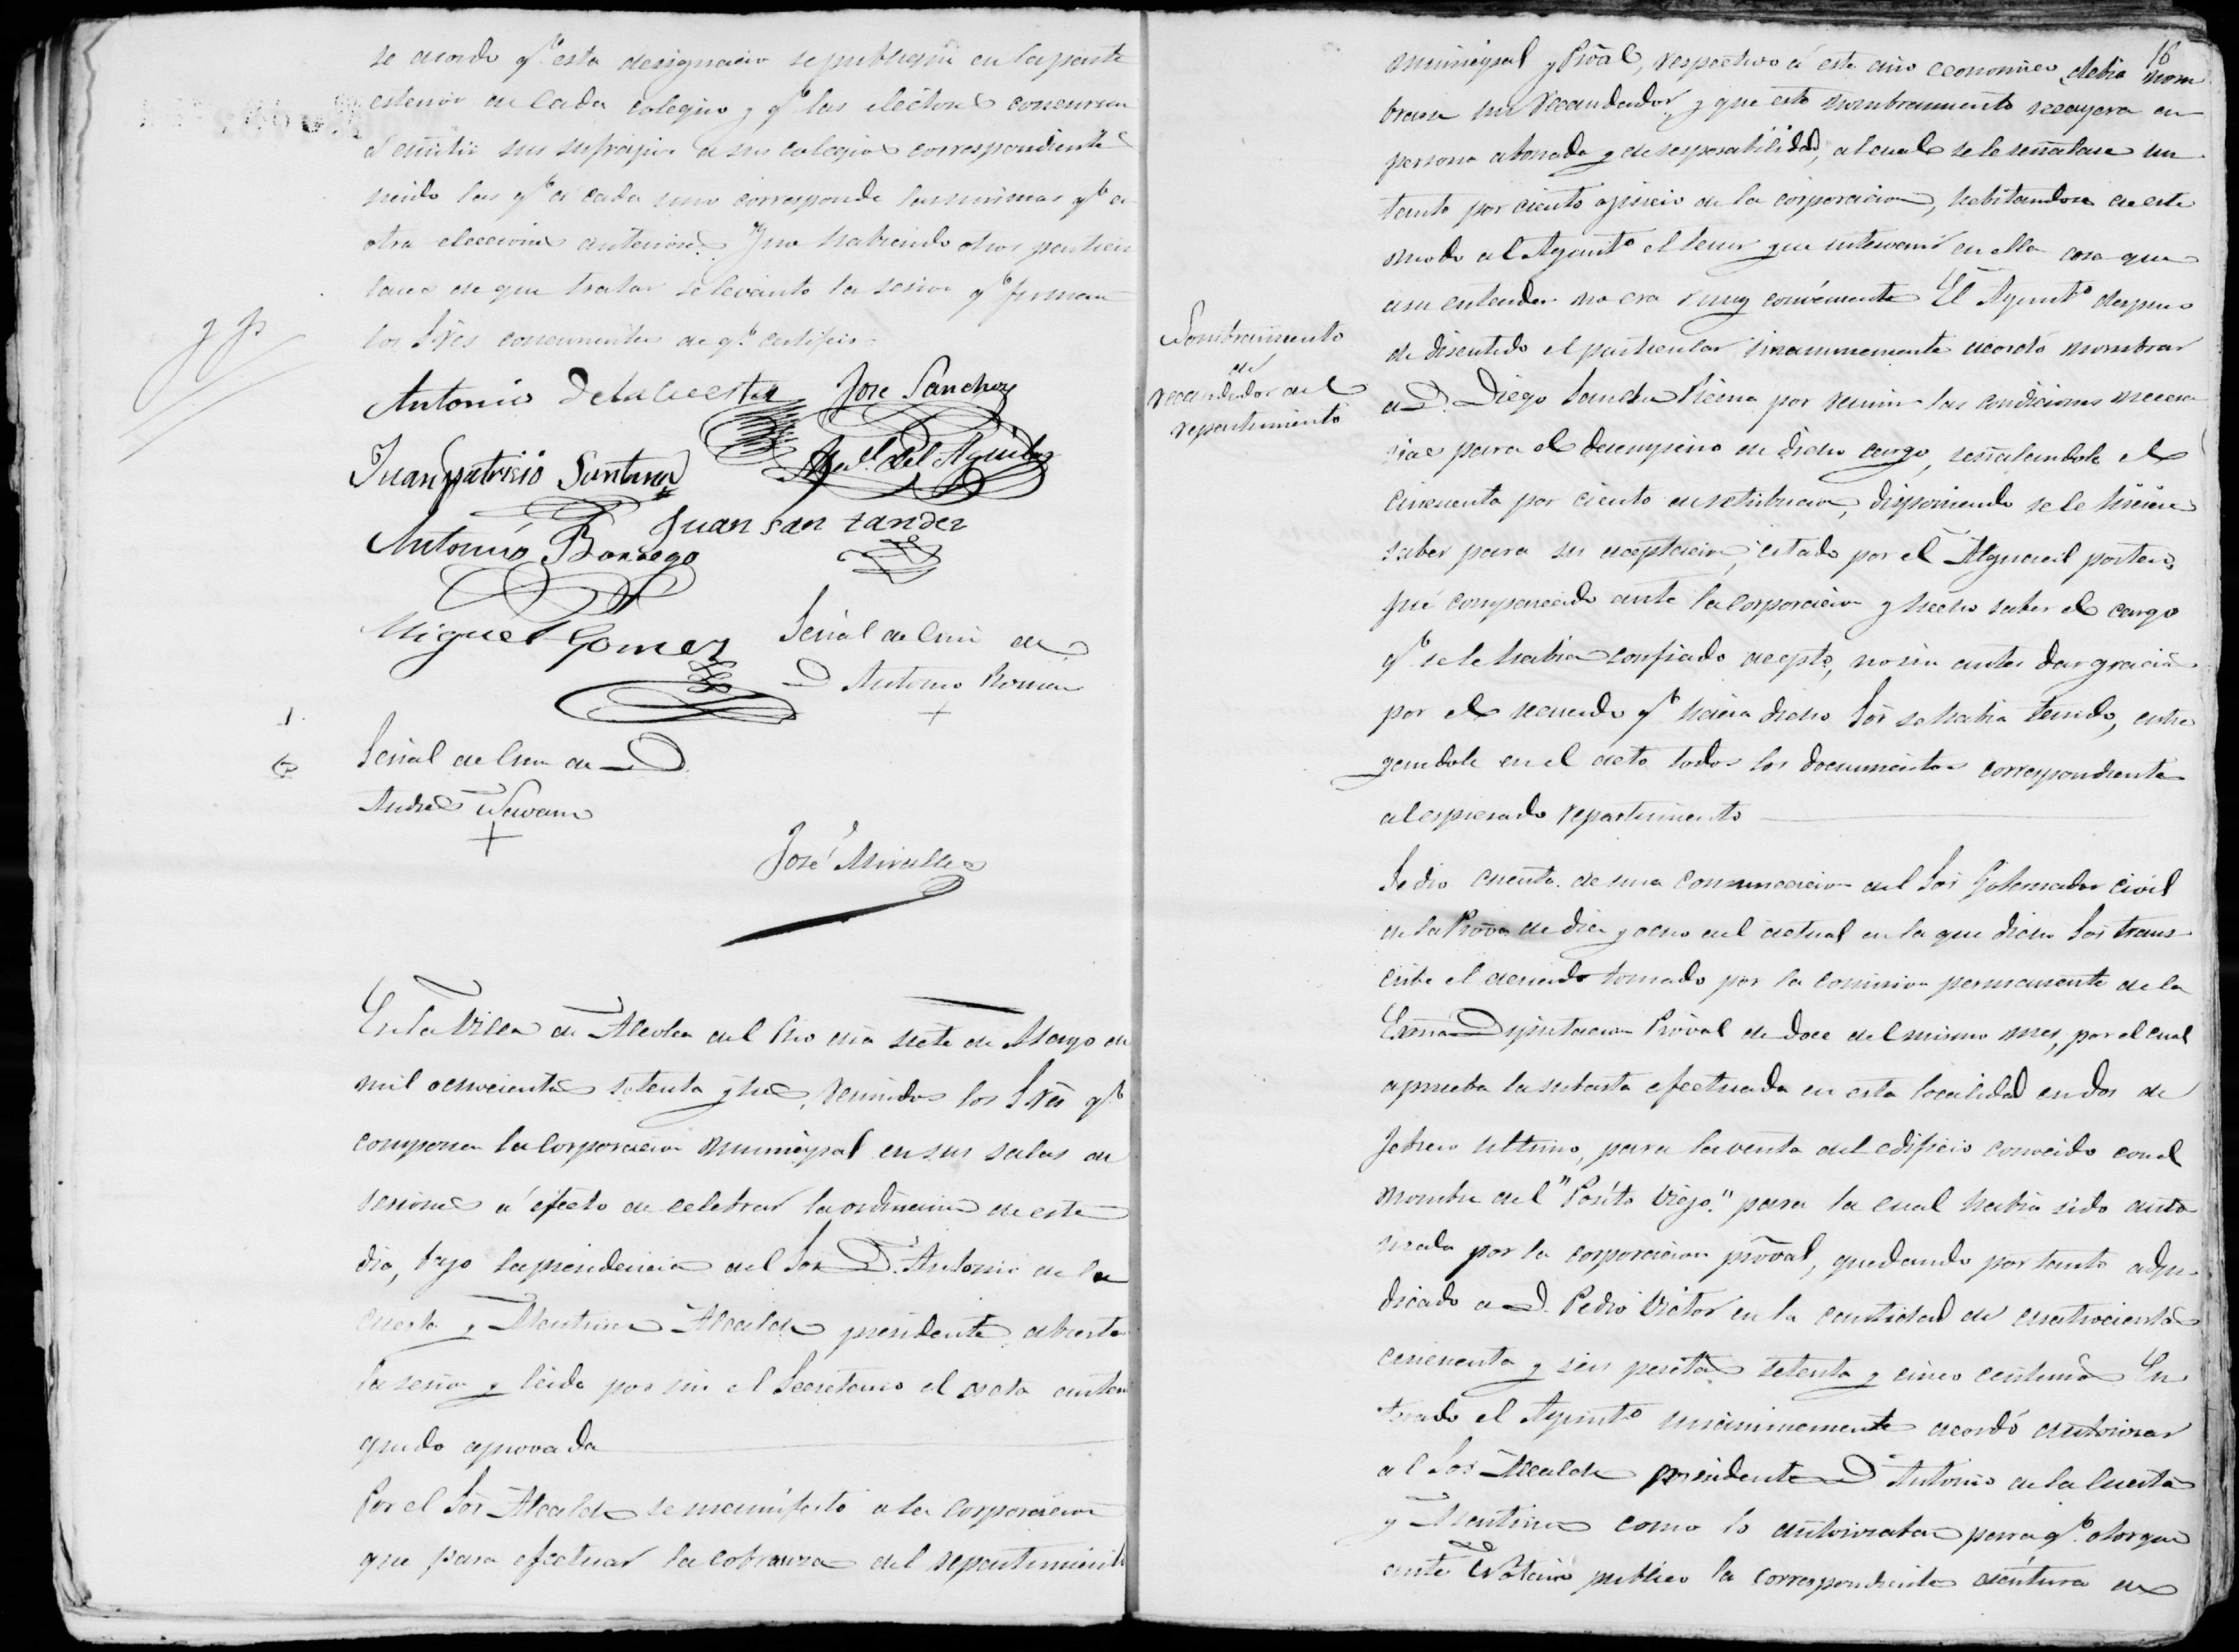 se acordo q.e esta designacion se publique en la parte
esterior de cada colegio y q.e los electores concurran
á emitir sus sufragios a sus colegios correspondientes
siendo las q.e á cada uno corresponde las mismas q.e en
otra elecciones anteriores. Y no habiendo otros particu
lares de que tratar se levanto la sesion q.e firman
los Sres concurrentes de q.e certifico =
Antonio de la Cuesta Jose Sanchez
Juan patrisio Santana del Aguila
Juan san tander
Antonio Borrego
Miguel Gomez Señal de Cruz de
D Antonio Roman
+
Señal de Cruz de D.
Andres Navarro
+
José Miralles
En la Villa de Alcolea del Rio dia siete de Mayo de
mil ochocientos setenta y tres, reunidos los Sres q.e
componen la Corporacion municipal en sus salas de
sesiones á efecto de celebrar la ordinaria de este
dia, bajo la presidencia del Sor D. Antonio de la
Cuesta y Alcalde presidente abierta
la sesion y leida por mi el Secretario el acta anteri
quedo aprovada
Por el Sor Alcalde se manifesto a la Corporacion
que para efectuar la cobranza del repartimiento
16
municipal y Proâl, respectivo á este año economico, debia nom
brarse un Recaudador, y que este nombramiento recayera en
persona abonada y de responsabilidad, al cual se le señalase un
tanto por ciento ajuicio de la corporacion, evitandose de este
modo al Ayunt.o el tener que intervenir en ella cosa que
a su entender no era muy conveniente El Ayunt.o despues
de discutido el particular unanimemente acordó nombrar
Nombramiento
de
recaudador del
repartimiento
a D. Diego Sanchez por reunir las condiciones necesa
rias para el desempeño de dicho cargo, señalandole el
cincuenta por ciento en retribucion, disponiendo se le hiciera
saber para su aceptacion; citado por el Alguacil portero,
fué comparecido ante la Corporacion y hecho saber el cargo
q.e se le habia confiado acepto, no sin antes dar gracias
por el recuerdo q.e hacia dicho Sor se habia tenido, entre
gandole en el acto todos los documentos correspondientes
al espresado repartimiento
Se dio cuenta de una comunicacion del Sor Gobernador Civil
de la Prova de diez y ocho del actual en la que dicho Sor trans
cribe el acuerdo tomado por la comision permanente de la
Exma Diputacion Proval de doce del mismo mes, por el cual
aprueba la subasta efectuada en esta localidad en dos de
Febrero ultimo, para la venta del edificio conocido con el
nombre del "Posíto Viejo." para la cual habia sido auto
rizada por la corporacion proval, quedando por tanto adju
dicado a D. Pedro Victor en la cantidad de cuatrocientas
cincuenta y seis pesetas setenta y cinco centimos En
terado el Ayunt.o unanimemente acordó autorizar
al Sor Alcalde presidente D. Antonio de la Cuesta
y como lo autorizaban para q.e otorgue
ante Notario publico la correspondiente escritura de